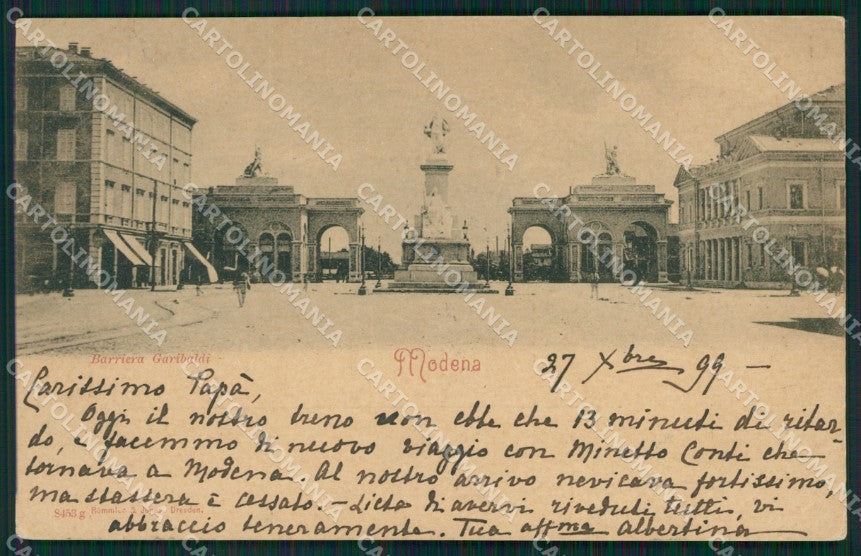 Barriera Garibaldi
Modena
27 Xbre 99 —
Carissimo Papà,
Oggi il nostro treno non ebbe che 13 minuti di ritar-
do, e facemmo di nuovo viaggio con Minetto Conti che
tornava a Modena. Al nostro arrivo nevicava fortissimo,
ma stassera è cessato. – Lieta di avervi riveduti tutti, vi
8453 g Römmler & Jonas, Dresden.
abbraccio teneramente. Tua affma Albertina
CARTOLINOMANIA